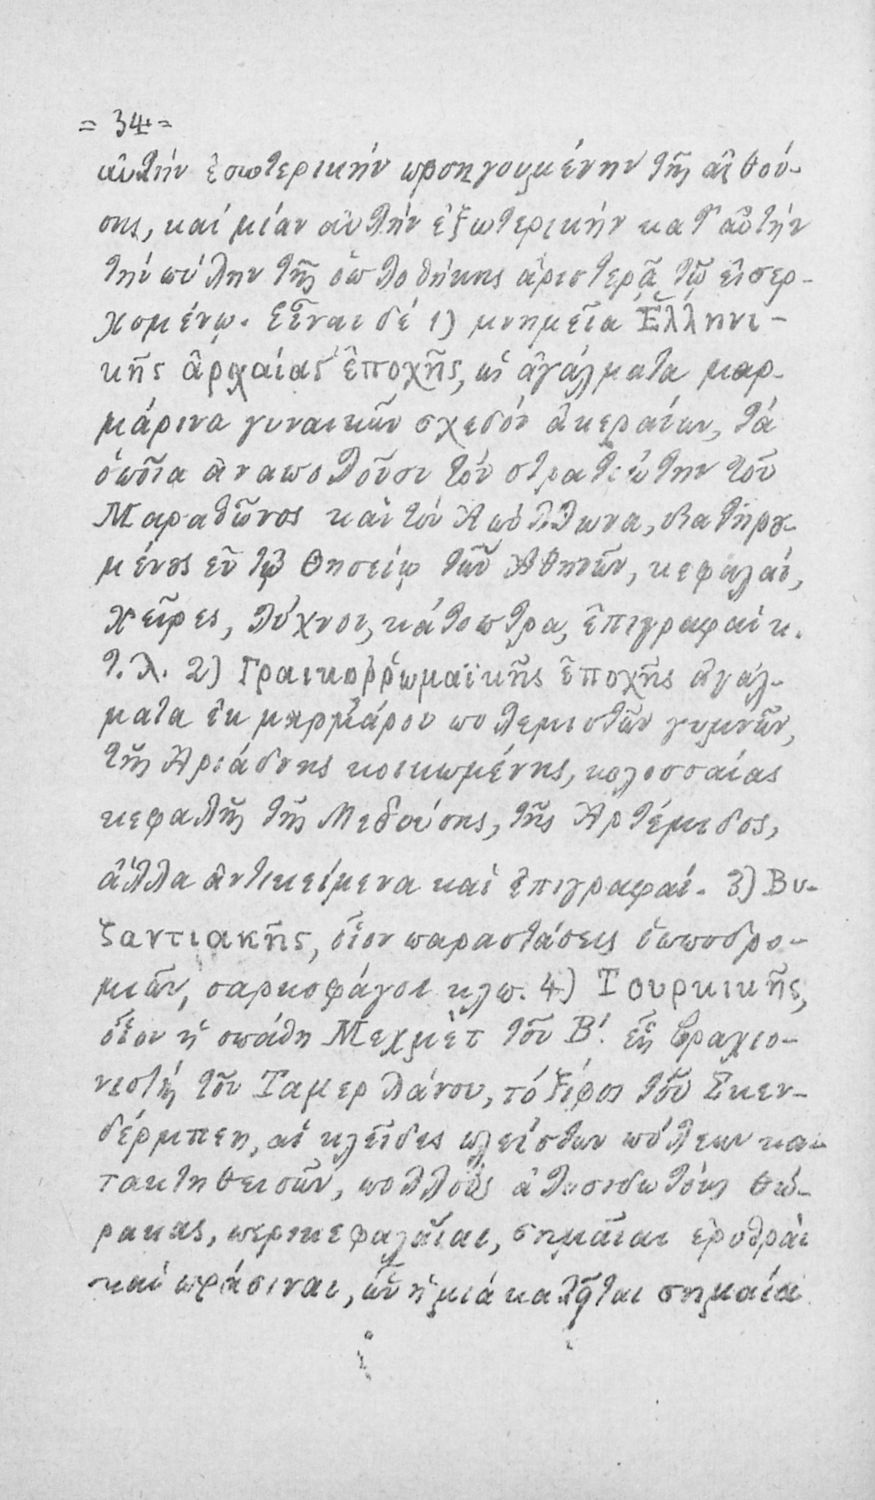 = 34 =
αὐτήν ἐσωτερικήν προηγουμένην τῆς αἰθού-
σης, καί μίαν αὐτήν ἐξωτερικήν κατ' αὐτήν
τήν πύλην τῆς ὁπλοθήκης ἀριστερᾷ τῷ εἰσερ-
χομένῳ. Εἶναι δέ 1) μνημεῖα Ἑλληνι-
κῆς ἀρχαίας ἐποχῆς, ὡς ἀγάλματα μαρ-
μάρινα γυναικῶν σχεδόν ἀκεραίων, τά
ὁποῖα ἀναπολοῦσι τόν στρατιώτην τοῦ
Μαραθῶνος καί τόν Ἀπόλλωνα, διατηρου-
μένους ἐν τῷ Θησείῳ τῶν Ἀθηνῶν, κεφαλαί,
χεῖρες, λύχνοι, κάτοπτρα, ἐπιγραφαί κ.
τ. λ. 2) Γραικορρωμαϊκῆς ἐποχῆς ἀγάλ-
ματα ἐκ μαρμάρου πολεμιστῶν γυμνῶν,
τῆς Ἀριάδνης κοιμωμένης, κολοσσαίας
κεφαλῆς τῆς Μεδούσης, τῆς Ἀρτέμιδος,
ἄλλα ἀντικείμενα καί ἐπιγραφαί. 3) Βυ-
ζαντιακῆς, οἷον παραστάσεις ἱπποδρο-
μιῶν, σαρκοφάγοι κλπ. 4) Τουρκικῆς,
οἷον ἡ σπάθη Μεχμὲτ τοῦ Β! ἓξ βραχιο-
νιστή τοῦ Ταμερλάνου, τό ξίφος τοῦ Σκεν-
δέρμπεη, αἱ κλεῖδες πλείστων πόλεων κα-
τακτηθεισῶν, πολλούς ἁλυσιδωτούς θώ-
ρακας, περικεφαλαῖαι, σημαῖαι ἐρυθραί
καί πράσιναι, ὧν ἡ μιά καλεῖται σημαία